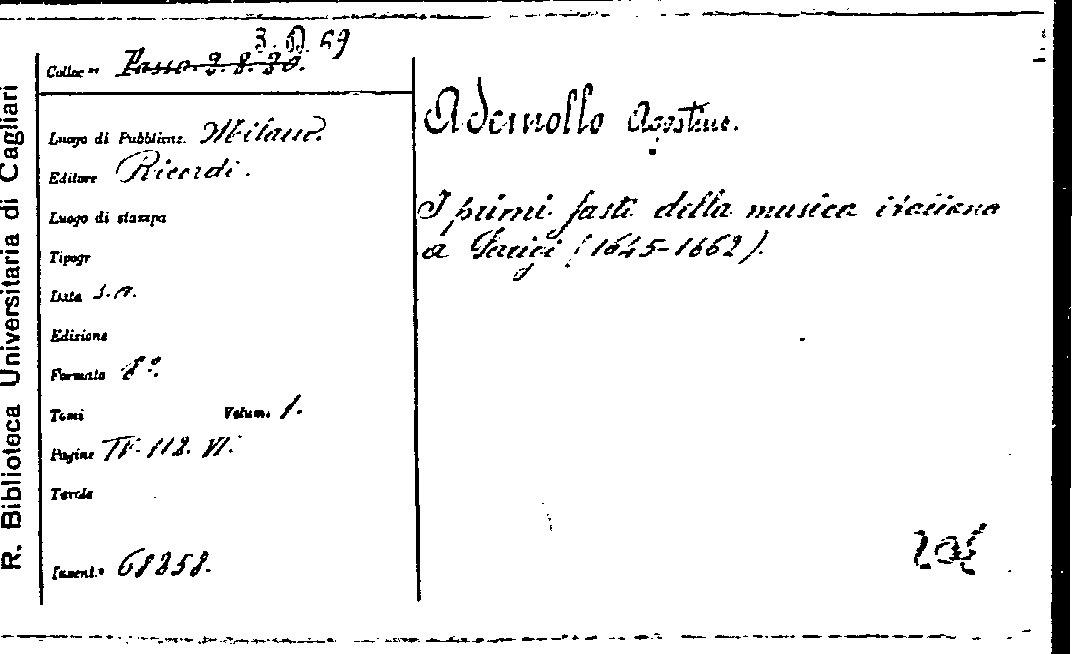 R. Biblioteca Universitaria di Cagliari
3. D. 69
Colloc.ne
Luogo di Pubblicaz. Milano.
Editore Ricordi.
Luogo di stampa
Tipogr
Data s.a.
Edizione
Formato 8º.
Tomi Volum. 1.
Pagine IV. 112. VI.
Tavole
Invent.º 68858.
Ademollo Agostino.
I primi fasti della musica italiana
a Parigi (1645-1662).